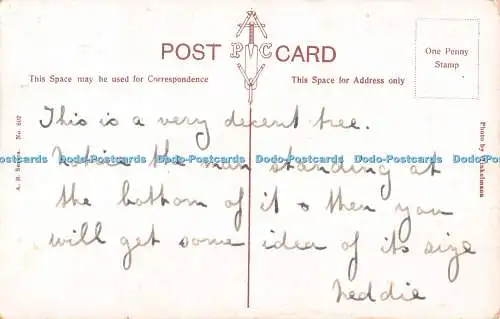 POST CARD
One Penny
Stamp
This Space may be used for Correspondence
This Space for Address only
This is a very decent tree.
Notice the man standing at
the bottom of it & then you
will get some idea of its size
Neddie
No. 607
Photo by
Dodo-Postcards Dodo-Postcards Dodo-Postcards Dodo-Postcards Dodo-Postcards